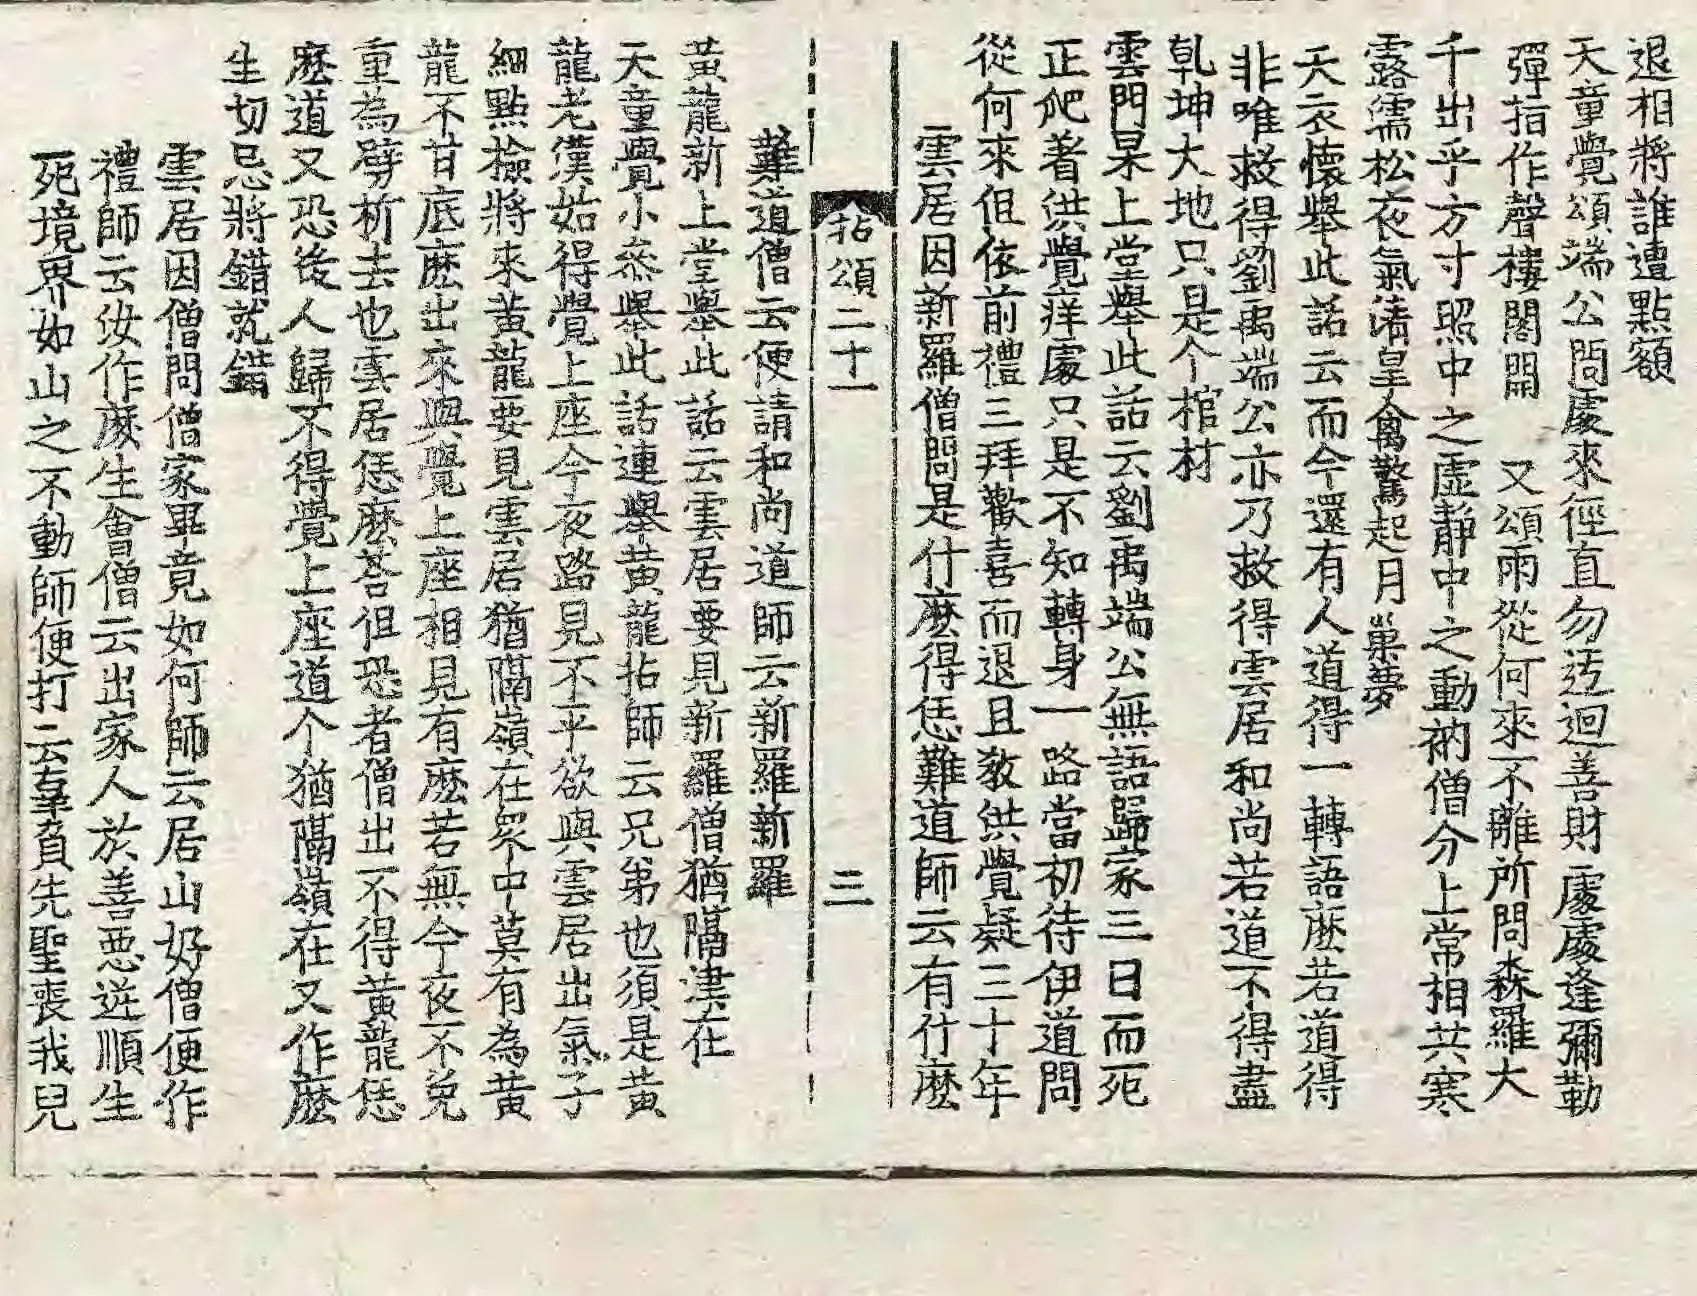 退相將誰遭點額
天童覺頌端公問處來徑直勿迃迴善財處處逢彌勒
彈指作聲樓閣開　又頌雨從何來不離所問森羅大
千出乎方寸照中之虛靜中之動衲僧分上常相共寒
露濡松夜氣清皇禽驚起月巢夢
天衣懷舉此話云而今還有人道得一轉語麽若道得
非唯救得劉禹端公亦乃救得雲居和尚若道不得盡
乹坤大地只是个棺材
雲門杲上堂舉此話云劉禹端公無語歸家三日而死
正爬着洪覺痒處只是不知轉身一路當初待伊道問
從何來但依前禮三拜歡喜而退且敎洪覺疑三十年
雲居因新羅僧問是什麽得恁難道師云有什麽
拈頌二十一　三
難道僧云便請和尚道師云新羅新羅
黃龍新上堂舉此話云雲居要見新羅僧猶隔津在
天童覺小叅舉此話連舉黃龍拈師云兄弟也須是黃
龍老漢始得覺上座今夜路見不平欲與雲居出氣子
細點檢將來黃龍要見雲居猶隔嶺在衆中莫有為黃
龍不甘底麽出來與覺上座相見有麽若無今夜不免
重為劈析去也雲居恁麽荅但恐者僧出不得黃龍恁
麽道又恐後人歸不得覺上座道个猶隔嶺在又作麽
生切忌將錯就錯
雲居因僧問僧家畢竟如何師云居山好僧便作
禮師云汝作麽生會僧云出家人於善惡逆順生
死境界如山之不動師便打云辜負先聖喪我兒